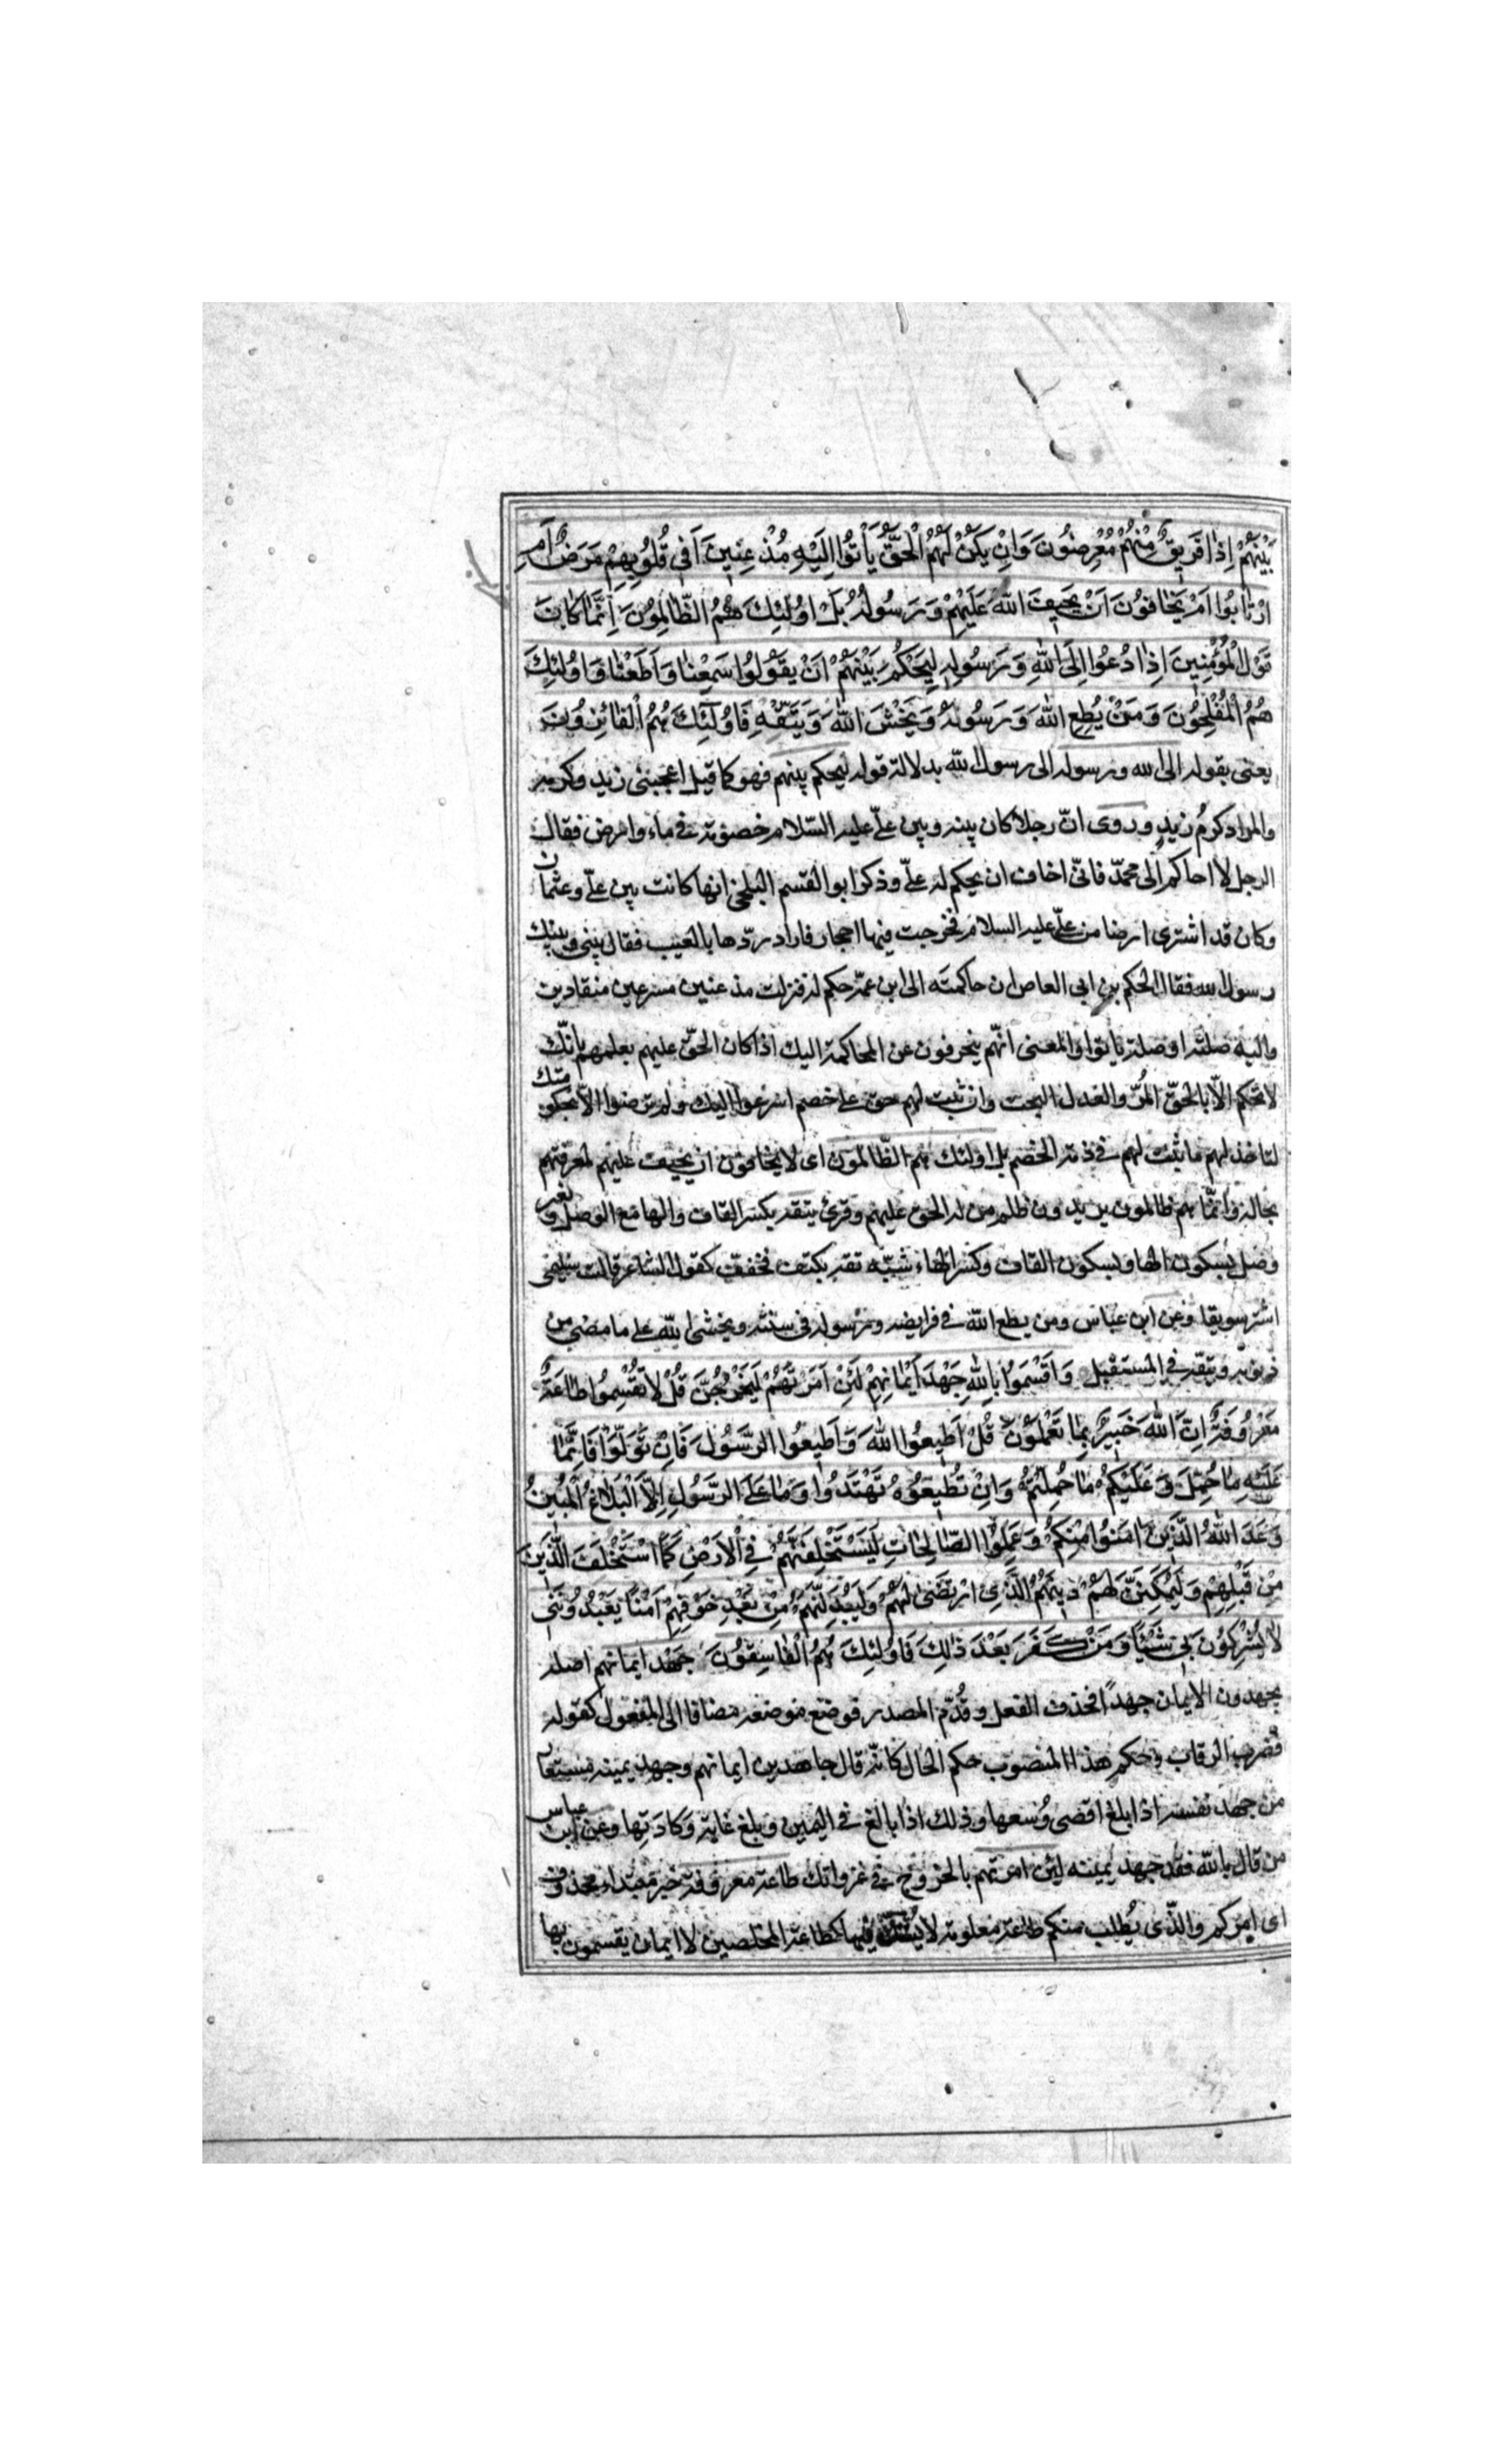 بَيْنَهُمْ اِذٰا فَرِيقٌ مِنْهُمْ مُعْرِضُونَ وَاِنْ يَكُنْ لَهُمُ الْحَقُّ يَأْتُوا اِلَيْهِ مُذْعِنِينَ اَفِي قُلُوبِهِمْ مَرَضٌ اَمِ
ارْتٰابُوا اَمْ يَخٰافُونَ اَنْ يَحِيفَ اللّٰهُ عَلَيْهِمْ وَرَسُولُهُ بَلْ اُولٰئِكَ هُمُ الظّٰالِمُونَ اِنَّمٰا كٰانَ
قَوْلَ الْمُؤْمِنِينَ اِذٰا دُعُوا اِلَى اللّٰهِ وَرَسُولِهِ لِيَحْكُمَ بَيْنَهُمْ اَنْ يَقُولُوا سَمِعْنٰا وَاَطَعْنٰا وَاُولٰئِكَ
هُمُ الْمُفْلِحُونَ وَمَنْ يُطِعِ اللّٰهَ وَرَسُولَهُ وَيَخْشَ اللّٰهَ وَيَتَّقْهِ فَاُولٰئِكَ هُمُ الْفٰائِزُونَ
يعنى بقوله الى الله ورسوله الى رسول الله بدلالة قوله ليحكم بينهم فهو كما قيل اعجبنى زيد وكرمه
والمراد كرمُ زيدٍ وروى انّ رجلا كان بينه وبين علىّ عليه السّلام خصومة فى ماء وارض فقال
الرجل لا احاكم الى محمّد فانّى اخاف ان يحكم له علىّ وذكر ابو القسم البلخى انها كانت بين علىّ وعثمان
وكان قد اشترى ارضا من علىّ عليه السلام فخرجت فيها احجار فاراد ردّها بالعيب فقال بينى وبينك
رسول الله فقال الحكم بن ابى العاص ان حاكمته الى ابن عمّه حكم له فنزلت مذعنين مسرعين منقادين
واليه صلته او صلة يأتوا والمعنى انّهم ينحرفون عن المحاكمة اليك اذا كان الحقّ عليهم بعلمهم بانّك
لا تحكم الّا بالحقّ المُرّ والعدل البحت وان ثبت لهم حق على خصم اسرعوا اليك ولم يرضوا الّا بحكومتك
لتاخذ لهم ما ثبت لهم فى ذمة الخصم بل اولئك هم الظّالمون اى لا يخافون ان يحيف عليهم لمعرفتهم
بحاله وانّما هم ظالمون يريدون ظلم من له الحق عليهم وقرئ يتقه بكسر القاف والها مع الوصل وبغير
وصل بسكون الها وبسكون القاف وكسر الهاء شبّه تقه بكتف فخفف كقول الشاعر قالت سليمى
اشتر سويقا وعن ابن عباس ومن يطع الله فى فرايضه ورسوله فى سنته ويخشى الله على ما مضى من
ذنوبه ويتقه فى المستقبل وَاَقْسَمُوا بِاللّٰهِ جَهْدَ اَيْمٰانِهِمْ لَئِنْ اَمَرْتَهُمْ لَيَخْرُجُنَّ قُلْ لٰا تُقْسِمُوا طٰاعَةٌ
مَعْرُوفَةٌ اِنَّ اللّٰهَ خَبِيرٌ بِمٰا تَعْمَلُونَ قُلْ اَطِيعُوا اللّٰهَ وَاَطِيعُوا الرَّسُولَ فَاِنْ تَوَلَّوْا فَاِنَّمٰا
عَلَيْهِ مٰا حُمِّلَ وَعَلَيْكُمْ مٰا حُمِلْتُمْ وَاِنْ تُطِيعُوهُ تَهْتَدُوا وَمٰا عَلَى الرَّسُولِ اِلَّا الْبَلٰاغُ الْمُبِينُ
وَعَدَ اللّٰهُ الَّذِينَ اٰمَنُوا مِنْكُمْ وَعَمِلُوا الصّٰالِحٰاتِ لَيَسْتَخْلِفَنَّهُمْ فِي الْاَرْضِ كَمَا اسْتَخْلَفَ الَّذِينَ
مِنْ قَبْلِهِمْ وَلَيُمَكِّنَنَّ لَهُمْ دِينَهُمُ الَّذِي ارْتَضىٰ لَهُمْ وَلَيُبَدِّلَنَّهُمْ مِنْ بَعْدِ خَوْفِهِمْ اَمْنًا يَعْبُدُونَنِي
لٰا يُشْرِكُونَ بِي شَيْئًا وَمَنْ كَفَرَ بَعْدَ ذٰلِكَ فَاُولٰئِكَ هُمُ الْفٰاسِقُونَ جهد ايمانهم اصله
يجهدون الايمان جهداً فحذف الفعل وقُدّم المصدر فوضع موضعه مضافا الى المفعول كقوله
فضرب الرقاب وحكم هذا المنصوب حكم الحال كانّه قال جاهدين ايمانهم وجهد يمينه مستعار
من جهد نفسه اذا بلغ اقصى وُسعها وذلك اذا بالغ فى اليمين وبلغ غاية وَكادَتِها وعن ابن عباس
من قال بالله فقد جهد يمينه لئن امرتهم بالخروج فى غزواتك طاعة معروفة خبر مبتداء محذوف
اى امركم والّذى يُطلب منكم طاعة معلومة لا يُشكّ فيها كطاعة المخلصين لا ايمان يقسمون بها